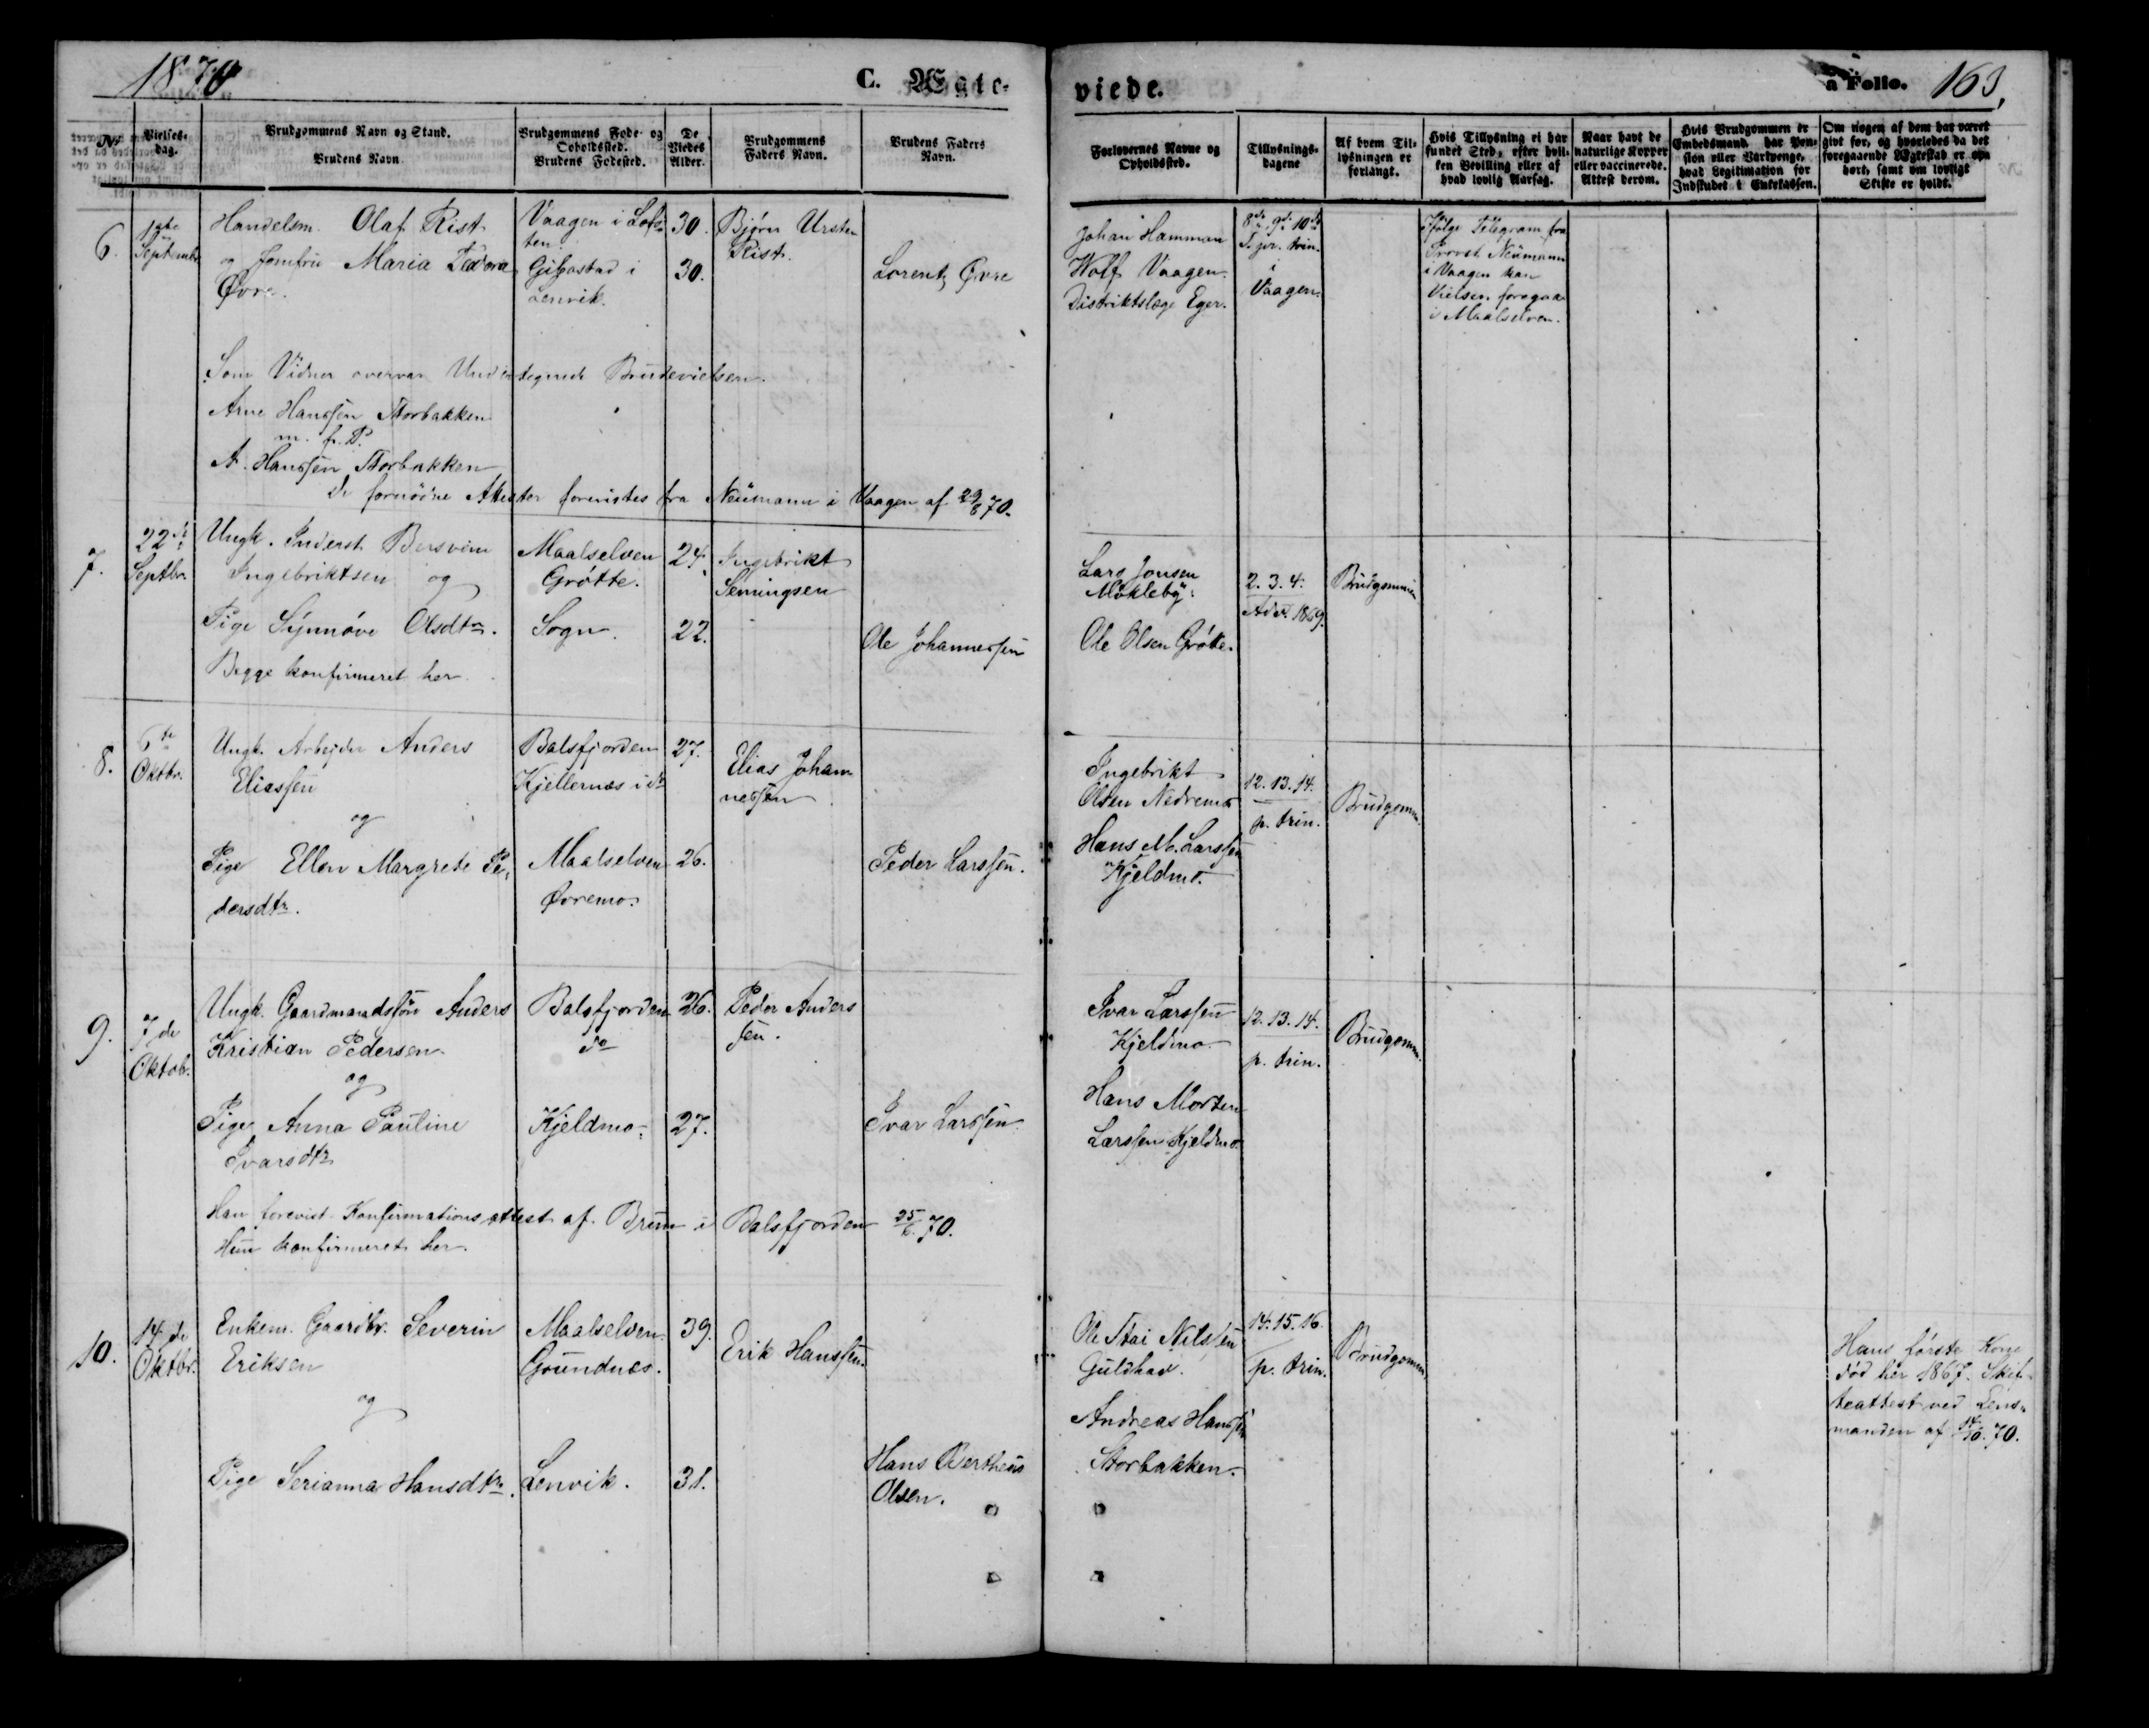 1870
C. Ægte-
viede.
a Folio. 163,
No
Vielses-
dag.
Brudgommens Navn og Stand.
Brudens Navn
Brudgommens Føde- og
Opholdssted.
Brudens Fødested.
De
Viedes
Alder.
Brudgommens
Faders Navn.
Brudens Faders
Navn.
Forlovernes Navne og
Opholdssted.
Tillysnings-
dagene
Af hvem Til-
lysningen er
forlangt.
Hvis Tillysning ei har
fundet Sted, efter hvil-
ken Bevilling eller af
hvad lovlig Aarsag.
Naar havt de
naturlige Kopper
eller vaccinerede.
Attest derom.
Hvis Brudgommen er
Embedsmand, har Pen-
sion eller Vartpenge,
hvad Legitimation for
Indskudet i Enkekassen.
Om nogen af dem har været
givt før, og hvorledes da det
foregaaende Ægteskab er op-
hørt, samt om lovligt
Skifte er holdt.
6.
1ste
Septembr
Handelsm. Olaf Rist
og Jomfru Maria Teodora
Øvre.
Vaagen i Lofo-
ten.
Gibostad i
Lenvik.
30.
30.
Bjørn Ursten
Rist.
Lorentz Øvre
Johan Hamman
Wolf Vaagen.
Distriktslæge Eger.
8de 9de 10de
S. pr. trin.
i
Vaagen.
Ifølge Telegram fra
Provst Neumann
i Vaagen kan
Vielsen foregaa
i Maalselven.
Som Vidner overvar Undertegnede Brudevielsen.
Arne Hanssen Storbakken
m. f. P.
A. Hanssen Storbakken
De fornødne Attester forevistes fra Neumann i Vaagen af 29/8 70.
7.
22de
Septbr.
Ungk. Inderst Bersvein
Ingebriktsen og
Pige Synnøve Olsdtr.
Begge konfirmeret her.
Maalselven
Grøtte.
Sogn.
24.
22.
Ingebrikt
Semingsen
Ole Johannessen
Lars Jonsen
Møkleby.
Ole Olsen Grøtte.
2. 3. 4.
Adv. 1869.
Brudgommen
8.
6te
Oktbr.
Ungk. Arbejder Anders
Eliassen
og
Pige Ellen Margrete Pe-
dersdtr.
Balsfjorden
Kjellernæs i do
Maalselven
Øvremo.
27.
26.
Elias Johan-
nessen
Peder Larssen.
Ingebrikt
Olsen Nedremo
Hans M. Larssen
Kjeldmo.
12. 13. 14.
p. trin.
Brudgomm.
9.
7de
Oktob.
Ungk. Gaardmandssøn Anders
Kristian Pedersen.
og
Pige Anna Pauline
Ivarsdtr
Balsfjorden
do
Kjeldmo.
26.
27.
Peder Anders
sen.
Ivar Larssen
Ivar Larssen
Kjeldmo.
Hans Morten
Larssen Kjeldmo.
12. 13. 14.
p. trin.
Brudgomm.
Han forevist Konfirmationsattest af Brun i Balsfjorden 25/6. 70.
Hun konfirmeret her.
10.
14de
Oktbr.
Enkem. Gaardbr. Severin
Eriksen
og
Pige Serianna Hansdtr.
Maalselven.
Grundnæs.
Lenvik.
39.
31.
Erik Hanssen.
Hans Bertheus
Olsen.
Ole Stai Nilssen
Guldhav.
Andreas Hanssen
Storbakken.
14. 15. 16.
p. trin.
Brudgomm
Hans første Kone
død her 1867. Skif-
teattest ved Lens-
manden af 14/10. 70.